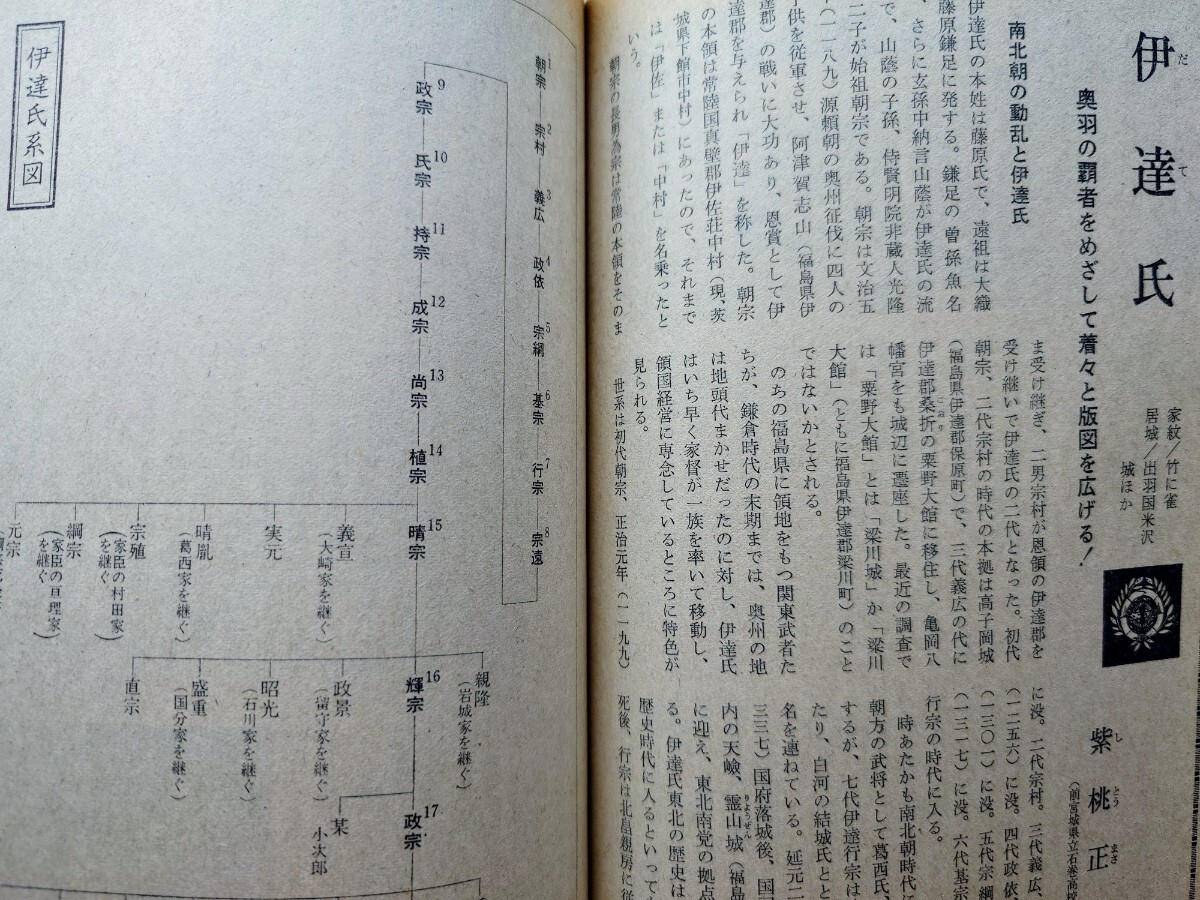 伊達氏
だて
奥羽の覇者をめざして着々と版図を広げる！
家紋／竹に雀
居城／出羽国米沢
城ほか
紫桃正
しとうまさ
(前宮城県立石巻高校
南北朝の動乱と伊達氏
伊達氏の本姓は藤原氏で、遠祖は大織
藤原鎌足に発する。鎌足の曽孫魚名
、さらに玄孫中納言山蔭が伊達氏の流
で、山蔭の子孫、侍賢明院非蔵人光隆
二子が始祖朝宗である。朝宗は文治五
(一一八九)源頼朝の奥州征伐に四人の
子供を従軍させ、阿津賀志山(福島県伊
達郡)の戦いに大功あり、恩賞として伊
達郡を与えられ「伊達」を称した。朝宗
の本領は常陸国真壁郡伊佐荘中村(現、茨
城県下館市中村)にあったので、それまで
は「伊佐」または「中村」を名乗ったと
いう。
朝宗の長男為宗は常陸の本領をそのま
ま受け継ぎ、二男宗村が恩領の伊達郡を
受け継いで伊達氏の二代となった。初代
朝宗、二代宗村の時代の本拠は高子岡城
(福島県伊達郡保原町)で、三代義広の代に
伊達郡桑折の粟野大館に移住し、亀岡八
こおり
幡宮をも城辺に遷座した。最近の調査で
は「粟野大館」とは「梁川城」か「梁川
大館」(ともに福島県伊達郡梁川町)のこと
ではないかとされる。
のちの福島県に領地をもつ関東武者た
ちが、鎌倉時代の末期までは、奥州の地
は地頭代まかせだったのに対し、伊達氏
はいち早く家督が一族を率いて移動し、
領国経営に専念しているところに特色が
見られる。
世系は初代朝宗、正治元年(一一九九)
に没。二代宗村。三代義広、
(一二五六)に没。四代政依、
(一三〇一)に没。五代宗綱
(一三一七)に没。六代基宗
行宗の時代に入る。
時あたかも南北朝時代に
朝方の武将として葛西氏、
するが、七代伊達行宗は
たり、白河の結城氏とと
名を連ねている。延元二
三三七)国府落城後、国
内の天嶮、霊山城(福島
りょうぜん
に迎え、東北南党の拠点
る。伊達氏東北の歴史は
歴史時代に入るといっても
死後、行宗は北畠親房に従
伊達氏系図
1朝宗―2宗村―3義広―4政依―5宗綱―6基宗―7行宗―8宗遠
9政宗―10氏宗―11持宗―12成宗―13尚宗―14植宗―15晴宗
義宣
(大崎家を継ぐ)
実元
晴胤
(葛西家を継ぐ)
宗殖
(家臣の村田家
を継ぐ)
綱宗
(家臣の亘理家
を継ぐ)
元宗
親隆
(岩城家を継ぐ)
16輝宗
政景
(留守家を継ぐ)
昭光
(石川家を継ぐ)
盛重
(国分家を継ぐ)
直宗
17政宗
某
小次郎